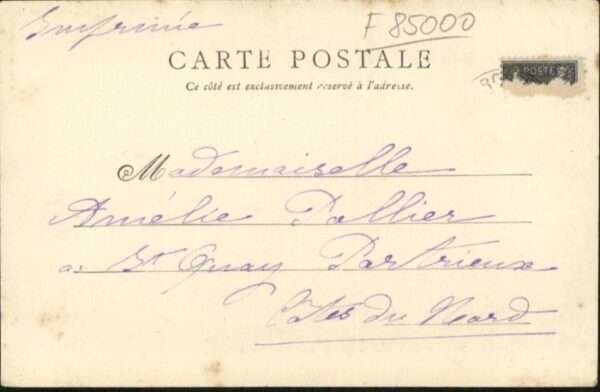 Imprimée
F 85000
CARTE POSTALE
POSTE
Ce côté est exclusivement réservé à l'adresse.
Mademoiselle
Amélie Pallier
à St Quay Portrieux
Côtes du Nord